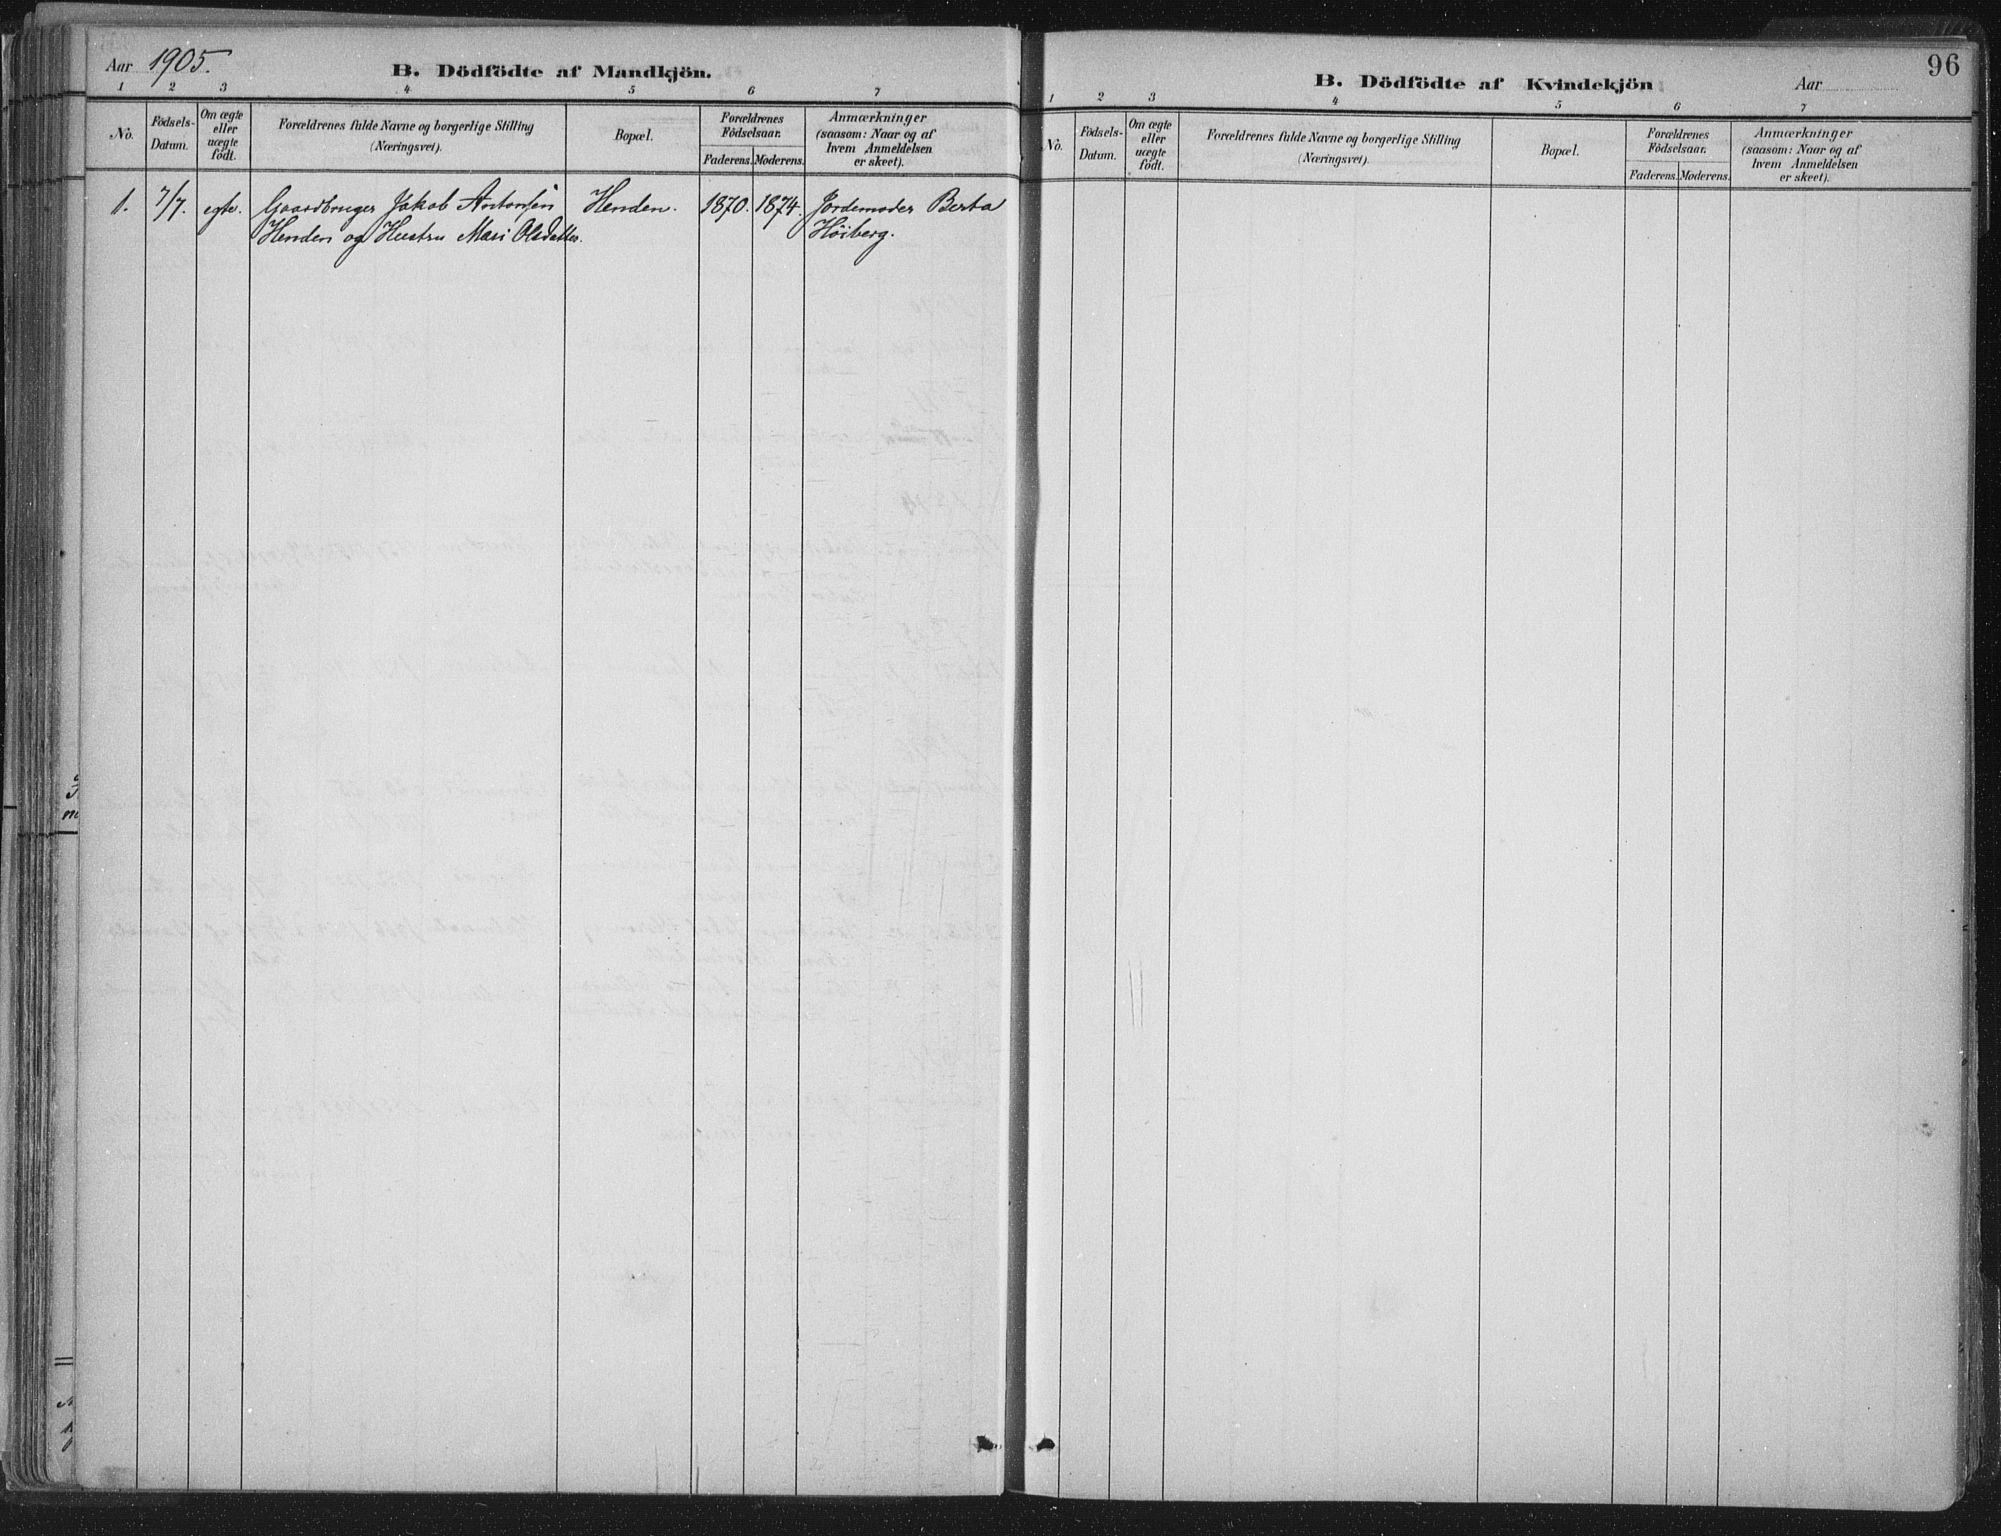 Aar 1905. B. Dödfödte af Mandkjön.
1 2 3 4 5 6 7
No. Födsels-Datum. Om ægte eller uægte födt. Forældrenes fulde Navne og borgerlige Stilling (Næringsvei). Bopæl. Forældrenes Födselsaar. Faderens. Moderens. Anmærkninger (saasom: Naar og af hvem Anmeldelsen er skeet).
1. 7/7. egte. Gaardbruger Jakob Antonsen Henden. 1870. 1874. Jordemoder Berta
Henden og Hustru Mari Olsdatter. Höiberg.
B. Dödfödte af Kvindekjön Aar 96
1 2 3 4 5 6 7
No. Födsels-Datum. Om ægte eller uægte födt. Forældrenes fulde Navne og borgerlige Stilling (Næringsvei). Bopæl. Forældrenes Födselsaar. Faderens. Moderens. Anmærkninger (saasom: Naar og af hvem Anmeldelsen er skeet).